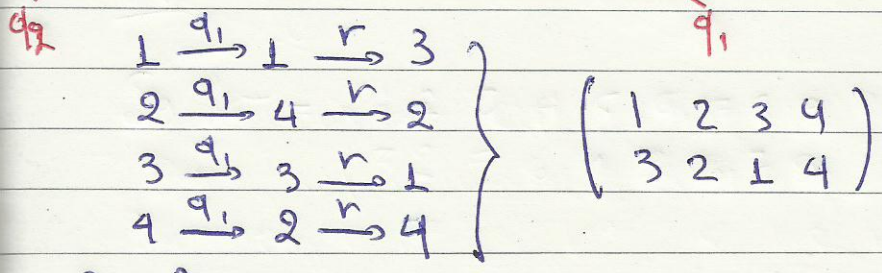 q₂ q₁
1 —q₁→ 1 —r→ 3
2 —q₁→ 4 —r→ 2
3 —q₁→ 3 —r→ 1
4 —q₁→ 2 —r→ 4
( 1 2 3 4
3 2 1 4 )